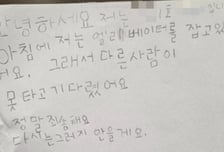 안녕하세요 저는 1호
아침에 저는 엘리베이터를 잡고있
어요. 그래서 다른 사람이
못 타고 기다렸어요
정말 죄송해요
다시는그러지 안을게요.